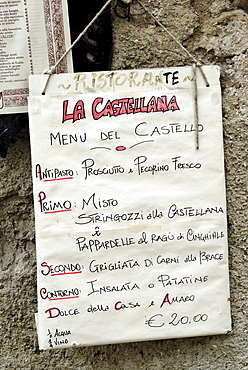 ~RISTORANTE
LA CASTELLANA
MENU DEL CASTELLO
ANTIPASTO: PROSCIUTTO e PECORINO FRESCO
PRIMO: MISTO
STRINGOZZI alla CASTELLANA
e
PAPPARDELLE al RAGÙ di CINGHIALE
SECONDO: GRIGLIATA DI CARNI alla BRACE
CONTORNO: INSALATA o PATATINE
DOLCE della CASA e AMARO
½ ACQUA
½ VINO
€ 20.00